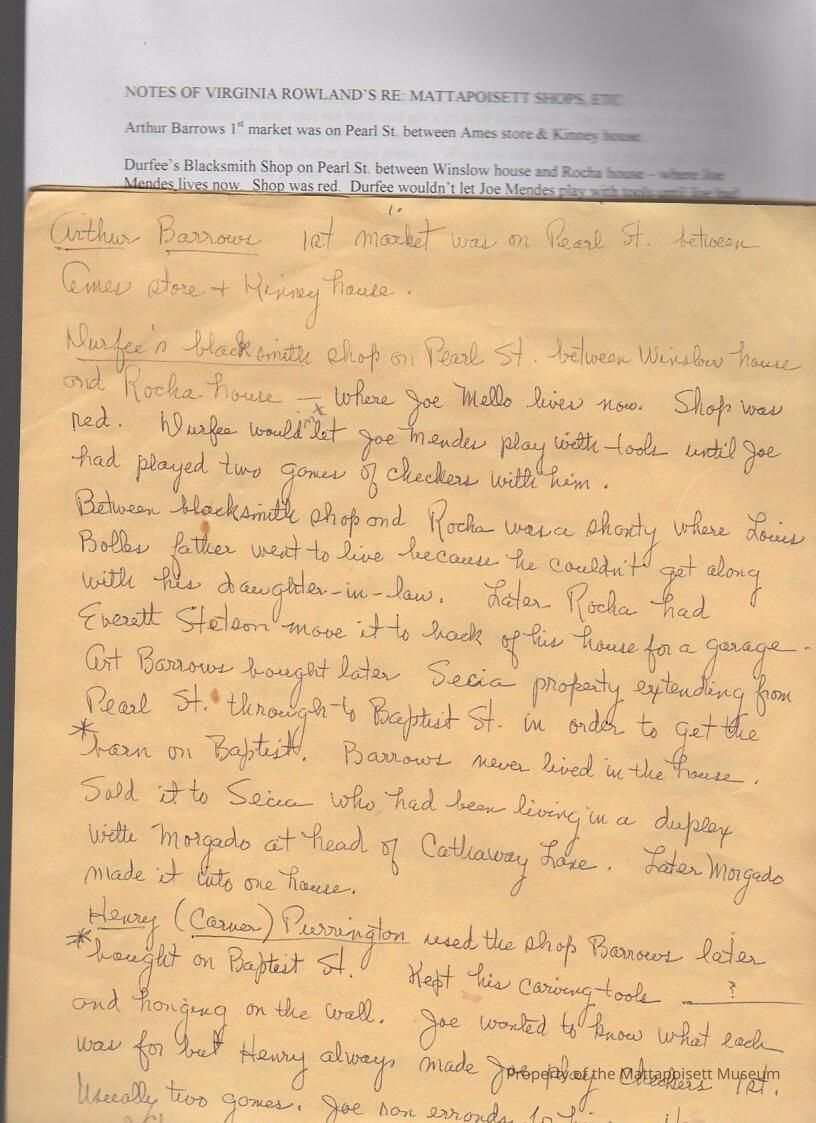 NOTES OF VIRGINIA ROWLAND'S RE: MATTAPOISETT SHOPS, ETC.
Arthur Barrows 1st market was on Pearl St. between Ames store & Kinney house.
Durfee's Blacksmith Shop on Pearl St. between Winslow house and Rocha house – where Joe
Mendes lives now. Shop was red. Durfee wouldn't let Joe Mendes play with tools until Joe had
1.
Arthur Barrows 1st market was on Pearl St. between
Ames store + Kinney house.
Durfee's blacksmith shop on Pearl St. between Winslow house
and Rocha house — where Joe Mello lives now. Shop was
red. Durfee wouldn't let Joe Mendes play with tools until Joe
had played two games of checkers with him.
Between blacksmith shop and Rocha was a shanty where Louis
Bolles father went to live because he couldn't get along
with his daughter-in-law. Later Rocha had
Everett Stetson move it to back of his house for a garage.
Art Barrows bought later Secia property extending from
Pearl St. through to Baptist St. in order to get the
* barn on Baptist. Barrows never lived in the house.
Sold it to Secia who had been living in a duplex
with Morgado at head of Cathaway Lane. Later Morgado
made it into one house.
Henry (Carver) Purrington used the shop Barrows later
* bought on Baptist St. Kept his carving tools ___?___
and hanging on the wall. Joe wanted to know what each
was for but Henry always made Joe play checkers 1st.
Usually two games. Joe ran errands
Property of the Mattapoisett Museum